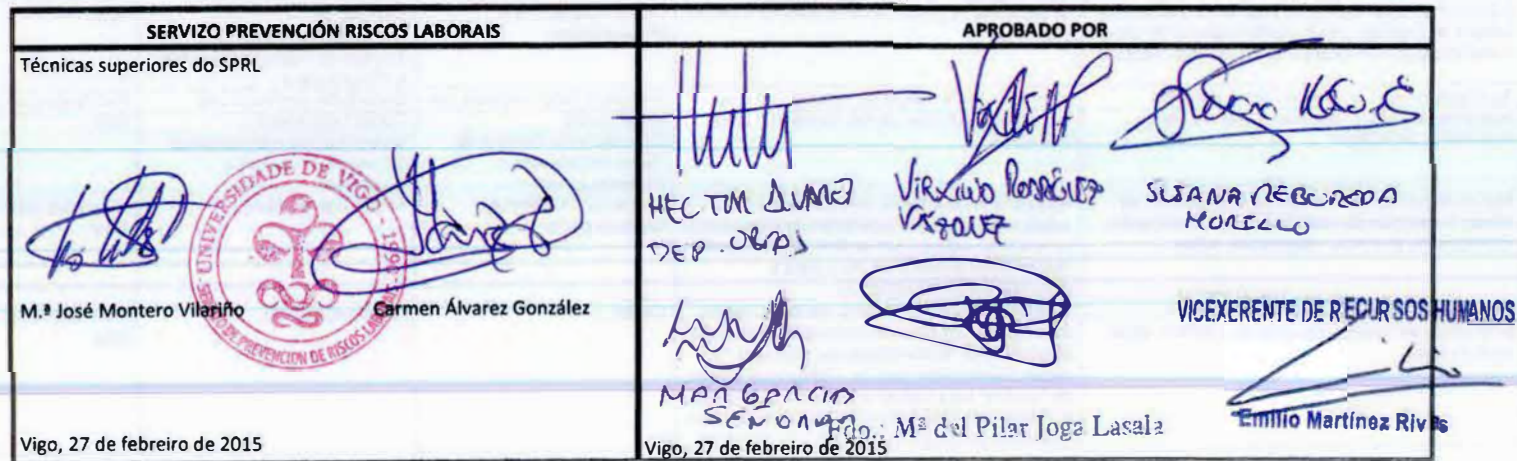 SERVIZO PREVENCIÓN RISCOS LABORAIS
APROBADO POR
Técnicas superiores do SPRL
UNIVERSIDADE DE VIGO · 1990 ·
SERVIZO DE PREVENCIÓN DE RISCOS LABORAIS
M.ª José Montero Vilariño
Carmen Álvarez González
Vigo, 27 de febreiro de 2015
HECTOR ALVAREZ
DEP. OBRAS
VIRXILIO RODRÍGUEZ
VÁZQUEZ
SUSANA REBOREDA
MORILLO
MAR GARCIA
SEÑORÁN
Fdo.: Mª del Pilar Joga Lasala
VICEXERENTE DE RECURSOS HUMANOS
Emilio Martínez Rivas
Vigo, 27 de febreiro de 2015